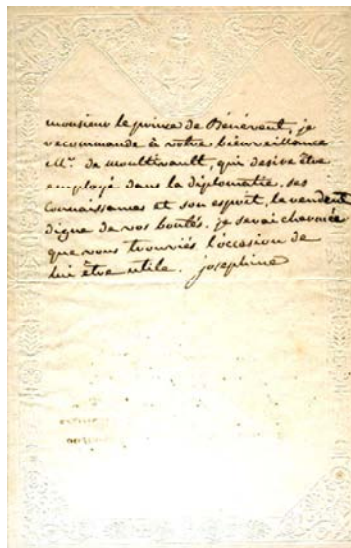 monsieur le prince de Bénévent, je
recommande à votre bienveillance
Mr. de moultivault, qui desire être
employé dans la diplomatie, ses
connaissances et son esprit, le rendent
digne de vos bontés. je serai charmée
que vous trouviés l'occasion de
lui être utile. josephine